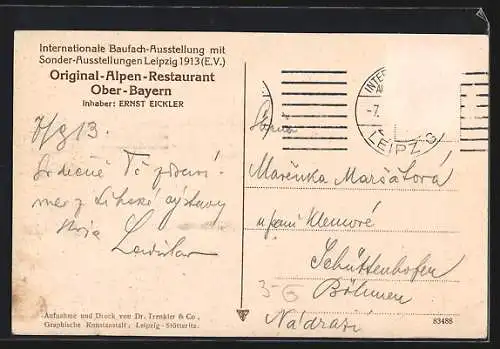 Internationale Baufach-Ausstellung mit
Sonder-Ausstellungen Leipzig 1913 (E.V.)
Original-Alpen-Restaurant
Ober-Bayern
Inhaber: ERNST EICKLER
7/9 13.
Srdečně Tě zdraví-
me z Lipské výstavy
Ladislav
Aufnahme und Druck von Dr. Trenkler & Co.,
Graphische Kunstanstalt, Leipzig-Stötteritz.
INTER
-7.
LEIPZIG
Slečna
Mařenka Maršátová
u paní Klemové
Schüttenhofen
Böhmen
Nádraží
3-G
83488